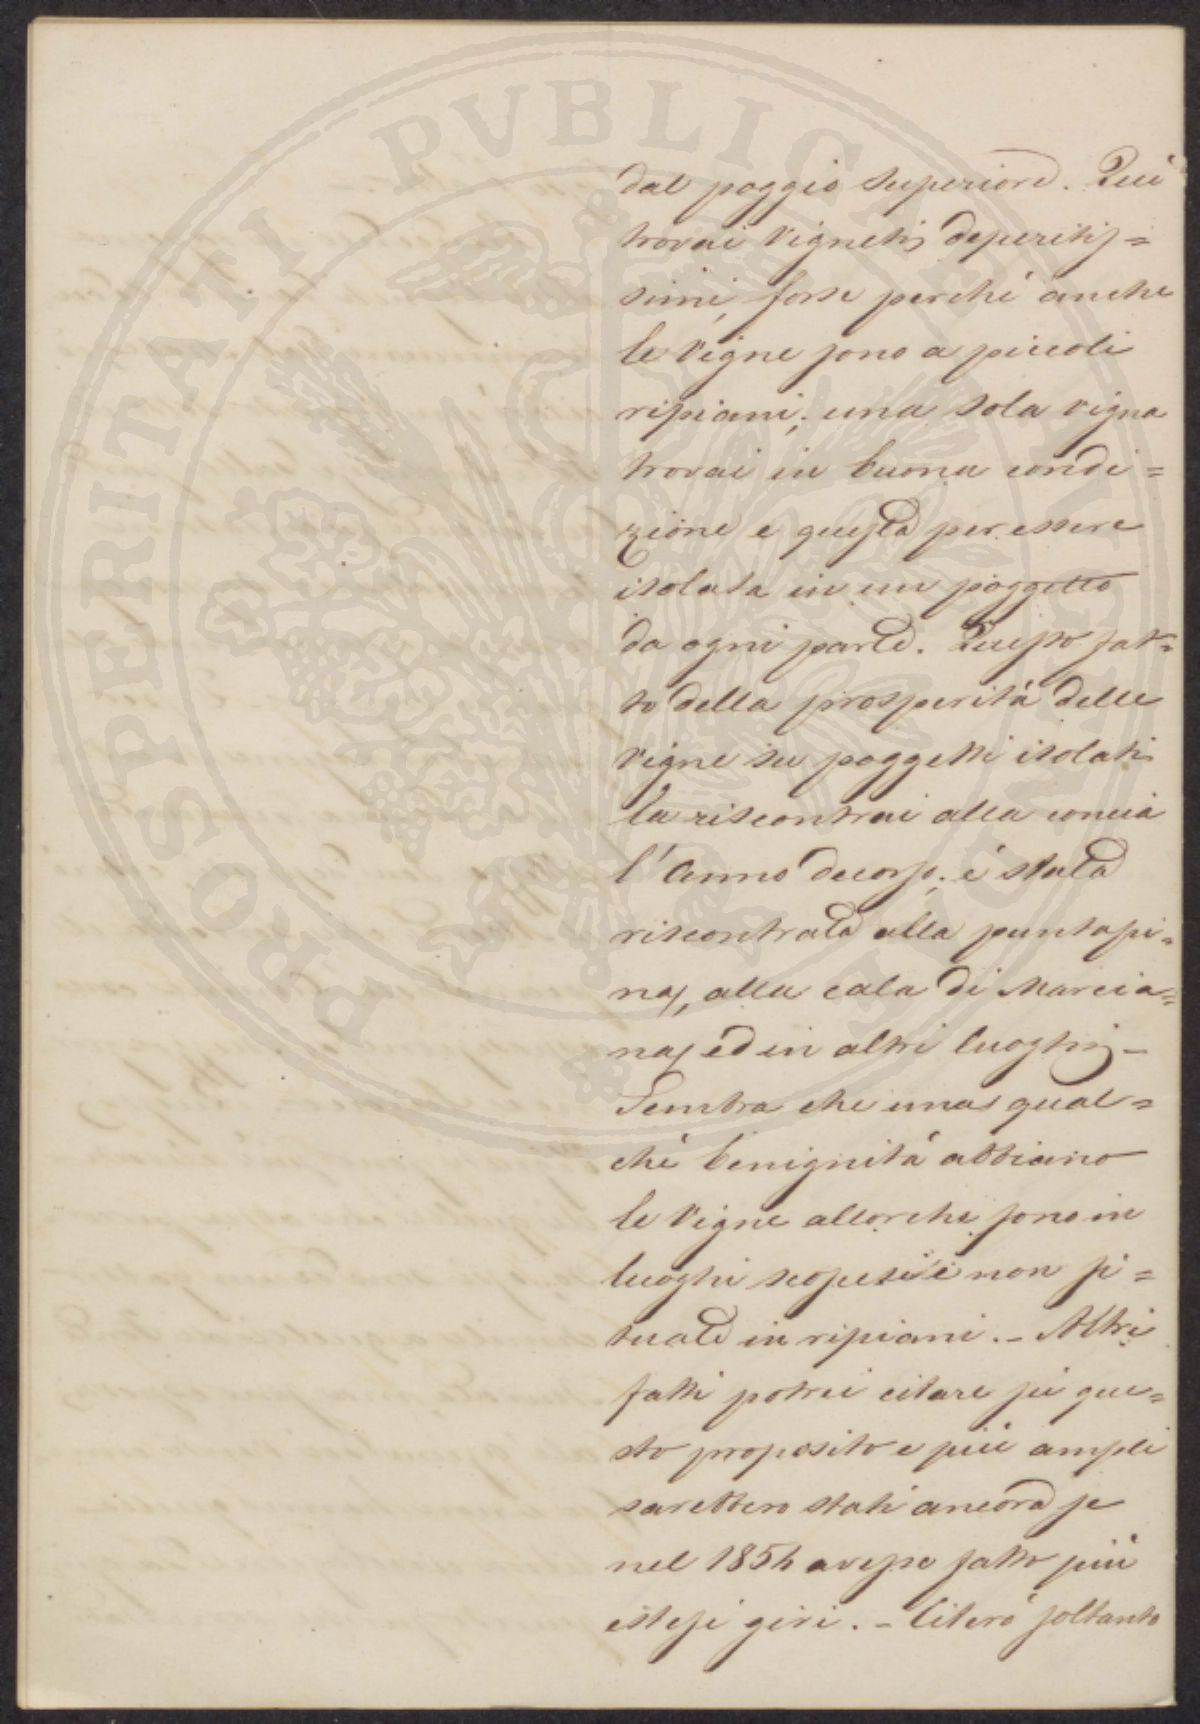 PROSPERITATI PVBLICAE AVGENDAE
dal poggio superiore. Quì
trovai Vigneti deperitis=
simi, forse perchè anche
le Vigne sono a piccoli
ripiani; una sola vigna
trovai in buona condi=
zione e questa per essere
isolata in un poggetto
da ogni parte. Questo fat=
to della prosperità delle
Vigne su poggetti isolati
la riscontrai alla concia
l'anno decorso; è stata
riscontrata alla puntapi=
na, alla cala di Marcia=
na, ed in altri luoghi –
Sembra che una qual=
chè benignità abbiano
le Vigne allorche sono in
luoghi scoperti e non si=
tuate in ripiani. – Altri
fatti potrei citare su que=
sto proposito e più ampli
sarebbero stati ancora se
nel 1854 avesse fatto più
estesi giri. – Citerò soltanto